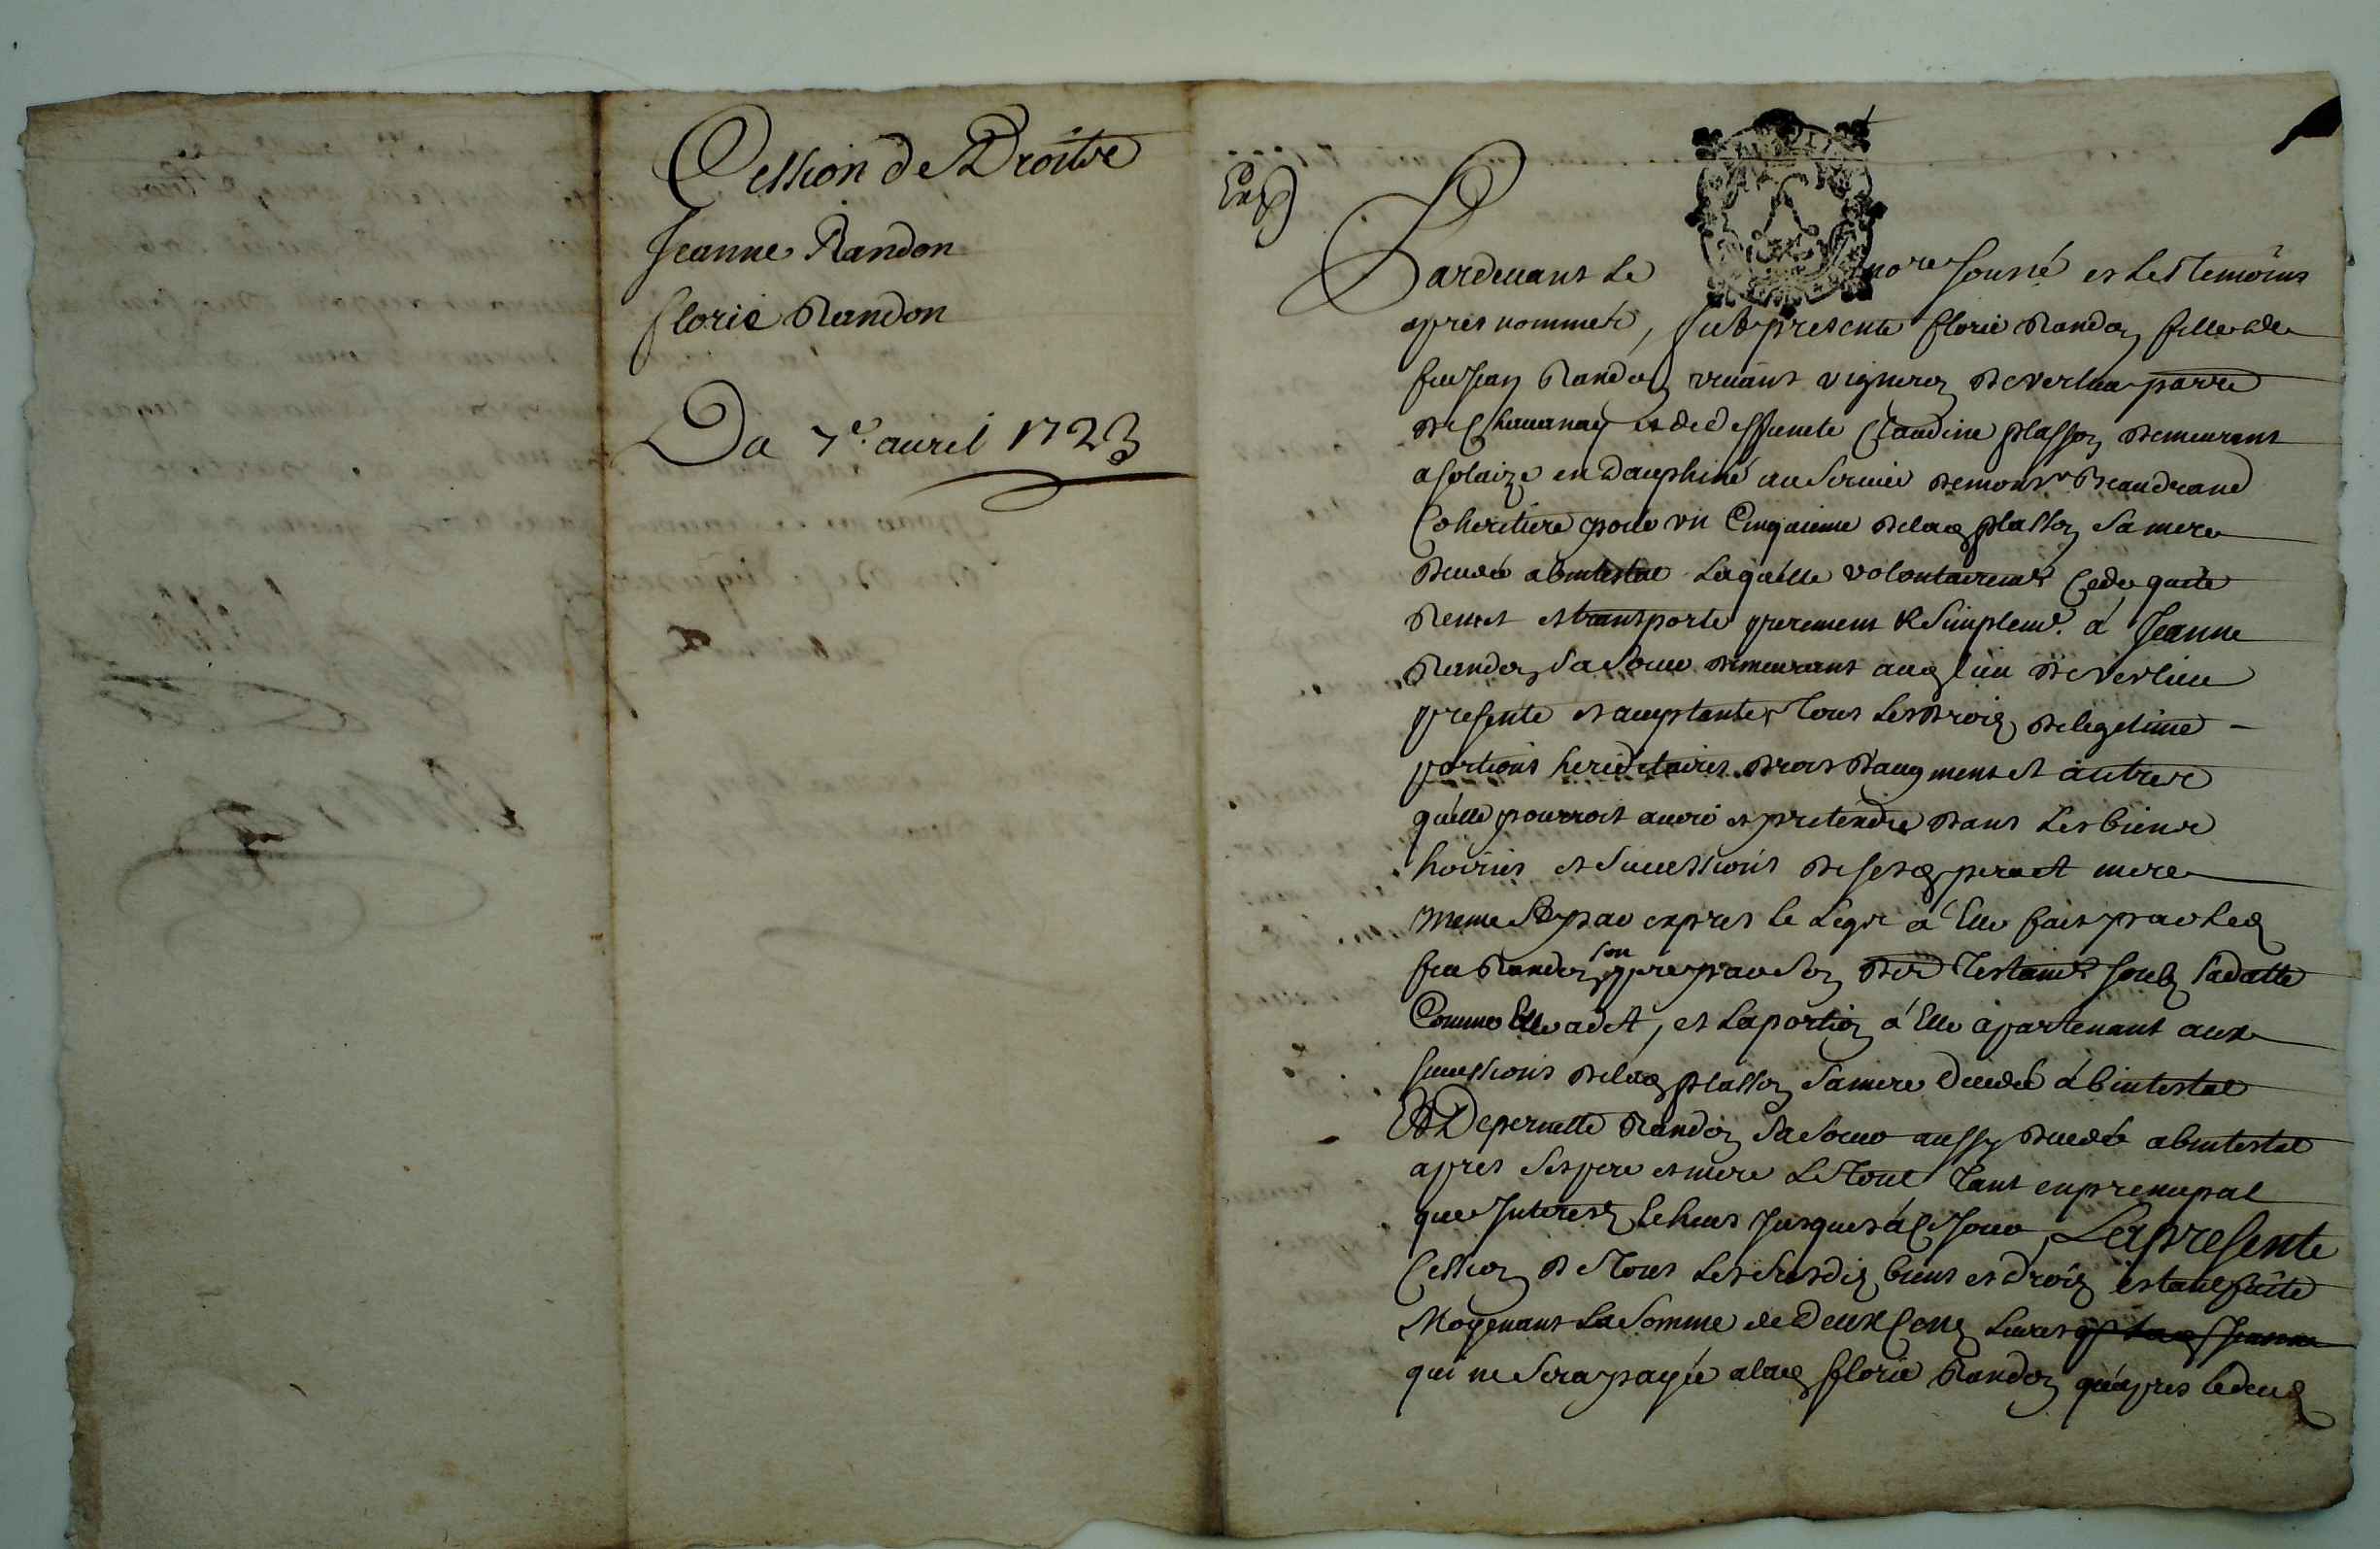 Cession de Droits
Jeanne Randon
florie Randon
Du 7e. avril 1723
Exp
Pardevant Le nore soussé et Les temoins
apres nommés, fut presente florie Randon fille de
feu Jean Randon vivant vigneron de verlieu parre
de Chavanay et de deffunte Claudine plasson demeurant
a solaize en dauphiné au service de monsr Beaudrand
Coheritiere pour un Cinquieme de lad plasson sa mere
decedée abintestat Laquelle volontairemt Cede quite
Remet et transporte purement & simplemt. à Jeanne
Randon sa soeur demeurant aud lieu de verlieu
presente et acceptante, Tous Les droits de legitime
portions hereditaires droit d'augment et autres
qu'elle pourroit avoir et pretendre dans Les biens
hoiries et successions de sesd pere et mere
meme par expres le Legs à Elle fait par led
feu Randon son pere par son der Testamt soubs sa datte
Comme Elle a dit, et La portion à Elle apartenant aux
successions de lad plasson sa mere decedée abintestat
Et De pernette Randon sa soeur aussy decedée abintestat
apres ses pere et mere Le Tout Tant en principal
que Interests Echeus Jusques à Ce Jour, La presente
Cession de Tous Les susdits biens et droits estant faite
Moyenant La somme de Deux Cens Livres
qui ne sera payée a lad florie Randon qu'apres le deces